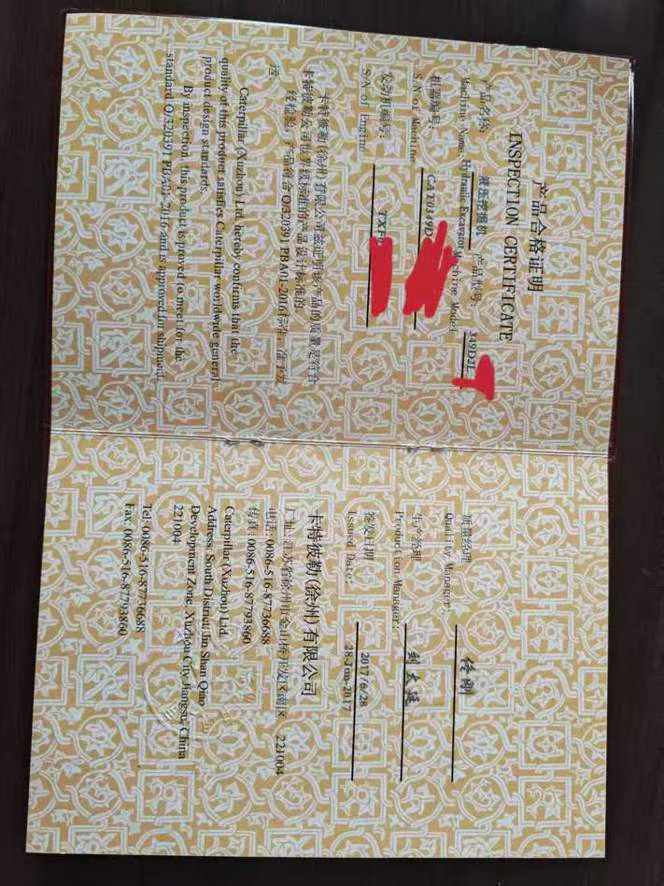 产品合格证明
INSPECTION CERTIFICATE
产品名称： 液压挖掘机 产品型号：
Machine Name: Hydraulic Excavator Machine Model: 349D2L
机器编号：
S/N of Machine CAT0349D
发动机编号：
S/N of Engine TXF
卡特彼勒(徐州)有限公司兹证明该产品的质量是符合
卡特彼勒公司世界级标准的产品设计标准的.
经检验，产品符合 Q/320391 PBA01-2016标准，准予发
运
Caterpillar (Xuzhou) Ltd. hereby confirms that the
quality of this product satisfies Caterpillar worldwide general
product design standards.
By inspection, this product is proved to meet for the
standard Q/320391 PBA01-2016 and is approved for shipment.
质量经理
Quality Manager:
生产经理
Production Manager:
签发日期 2017/6/28
Issued Date: 28-Jun-2017
卡特彼勒(徐州)有限公司
厂址：江苏省徐州市金山桥开发区南区 221004
电话：0086-516-87736688
传真：0086-516-87793860
Caterpillar (Xuzhou) Ltd.
Address: South District, Jin Shan Qiao
Development Zone, Xuzhou City Jiangsu, China
221004
Tel: 0086-516-87736688
Fax: 0086-516-87793860